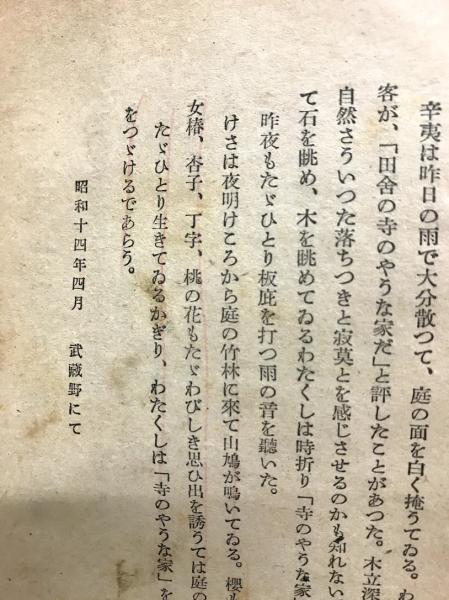 辛夷は昨日の雨で大分散つて、庭の面を白く掩うてゐる。わ
客が、「田舎の寺のやうな家だ」と評したことがあつた。木立深
自然さういつた落ちつきと寂莫とを感じさせるのかも知れない
て石を眺め、木を眺めてゐるわたくしは時折り「寺のやうな家
昨夜もたゞひとり板庇を打つ雨の音を聽いた。
けさは夜明けころから庭の竹林に來て山鳩が鳴いてゐる。櫻も
女椿、杏子、丁字、桃の花もたゞわびしき思ひ出を誘うては庭の
たゞひとり生きてゐるかぎり、わたくしは「寺のやうな家」を
をつゞけるであらう。
昭和十四年四月 武藏野にて